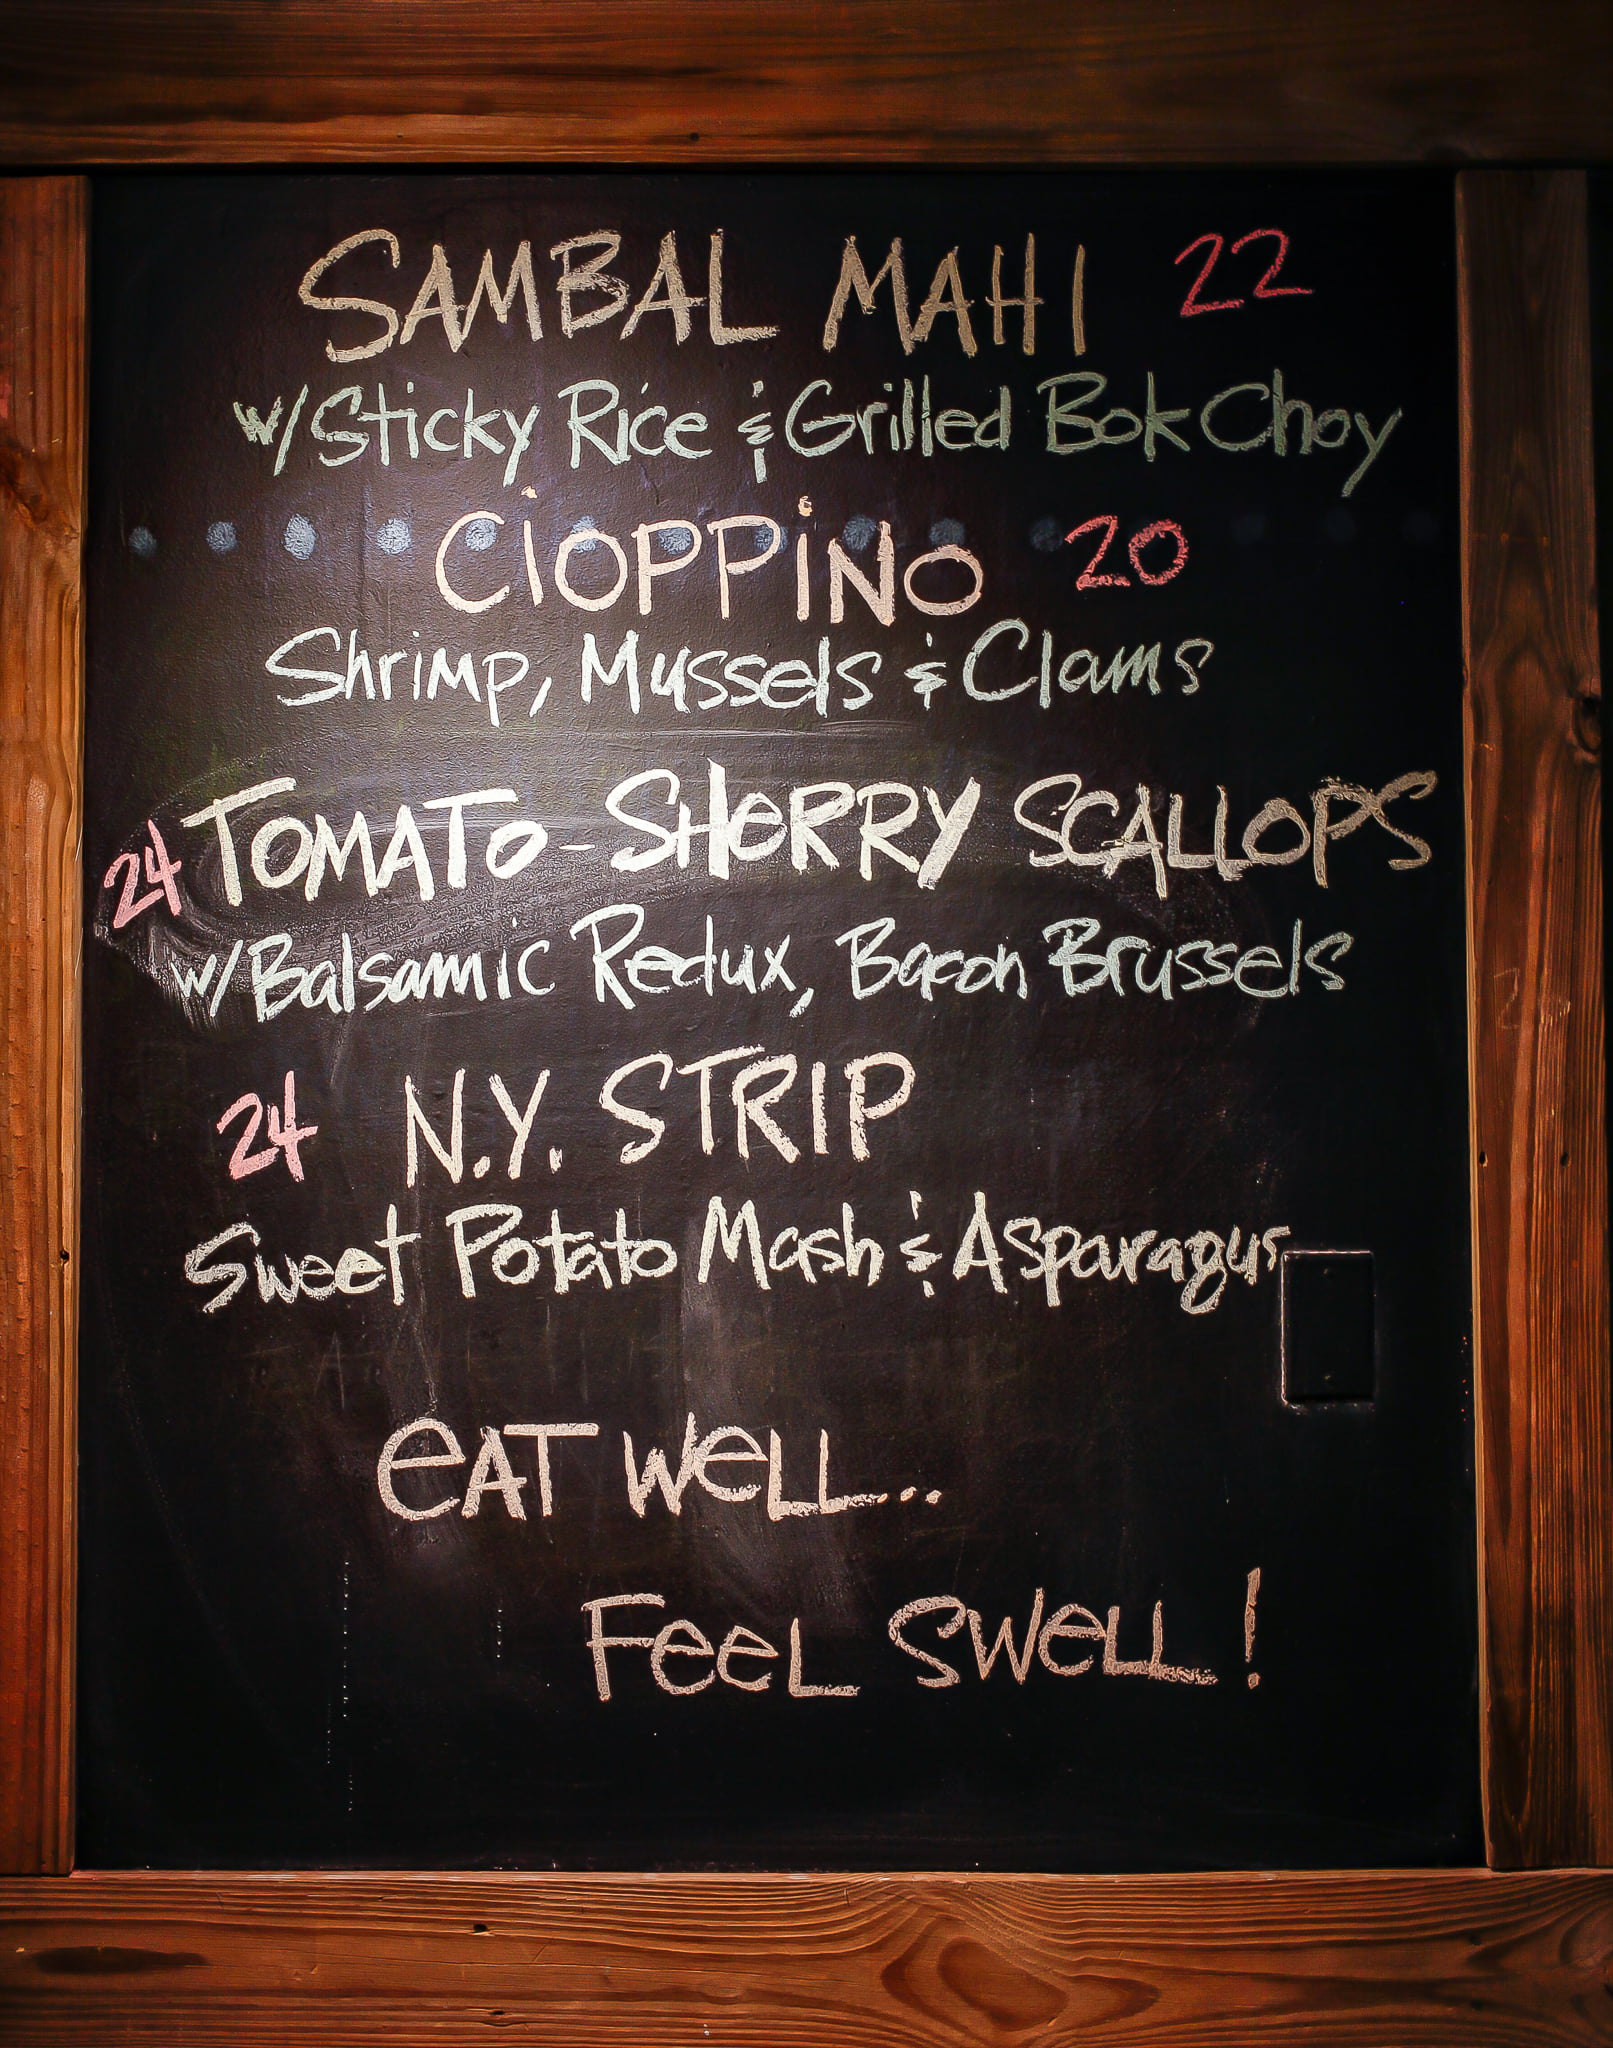 SAMBAL MAHI 22
w/Sticky Rice & Grilled Bok Choy
CIOPPINO 20
Shrimp, Mussels & Clams
24 TOMATO-SHERRY SCALLOPS
w/Balsamic Redux, Bacon Brussels
24 N.Y. STRIP
Sweet Potato Mash & Asparagus
eAT WeLL...
FeeL SWeLL!